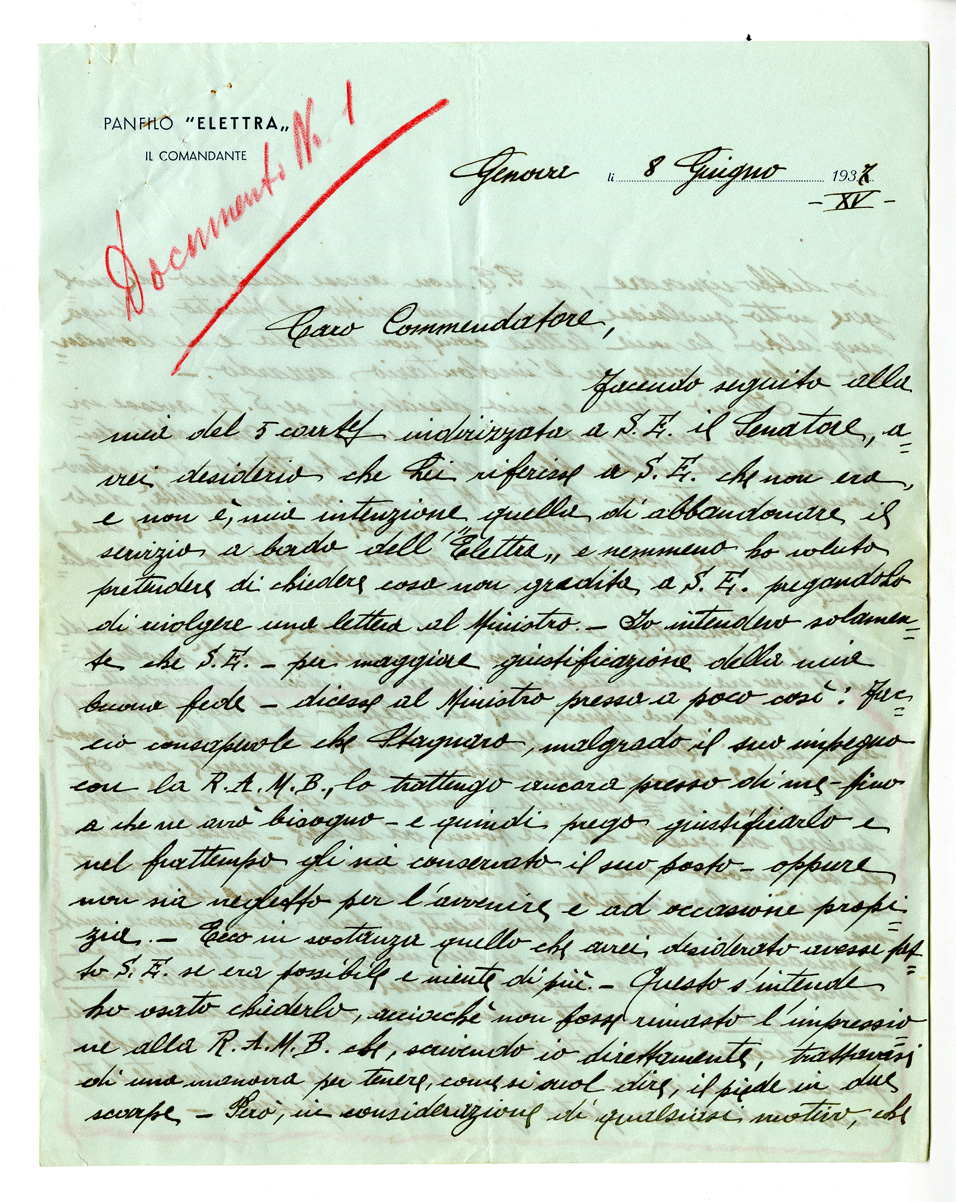 PANFILO "ELETTRA„
IL COMANDANTE
Documento N. 1
Genova li 8 Giugno 1937
- XV -
Caro Commendatore,
Facendo seguito alla
mia del 5 corr. indirizzata a S. E. il Senatore, a=
vrei desiderio che Lei riferisse a S. E. che non era,
e non è, mia intenzione quella di abbandonare il
servizio a bordo dell'"Elettra„ e nemmeno ho voluto
pretendere di chiedere cosa non gradita a S. E. pregandolo
di rivolgere una lettera al Ministro. - Io intendevo solamen=
te che S. E. - per maggiore giustificazione della mia
buona fede - dicesse al Ministro presso a poco così: Fac=
cio consapevole che Stagnaro, malgrado il suo impegno
con la R.A.M.B., lo trattengo ancora presso di me - fino
a che ne avrò bisogno - e quindi prego giustificarlo e
nel frattempo gli sia conservato il suo posto - oppure
non sia negletto per l'avvenire e ad occasione propi=
zia. - Ecco in sostanza quello che avrei desiderato avesse fat=
to S. E. se era possibile e niente di più. - Questo s'intende
ho osato chiederlo, acciocchè non fosse rimasto l'impressio=
ne alla R.A.M.B. che, scrivendo io direttamente, trattavasi
di una manovra per tenere, come si suol dire, il piede in due
scarpe - Però, in considerazione di qualsiasi motivo, che